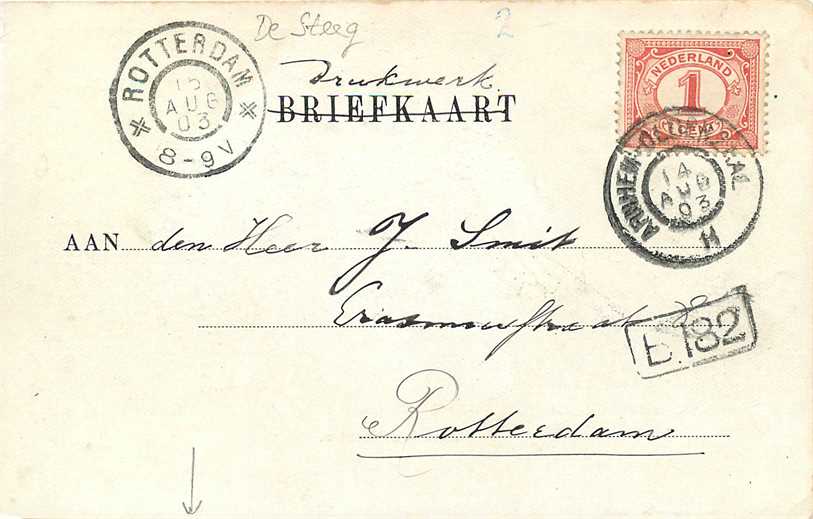 De Steeg
2
ROTTERDAM
15
AUG
03
8-9V
Drukwerk
BRIEFKAART
NEDERLAND
1
1 CENT
ARNHEM-OLDENZAAL
14
AUG
03
H
AAN den Heer J. Smit
Erasmusstraat
B.182
Rotterdam